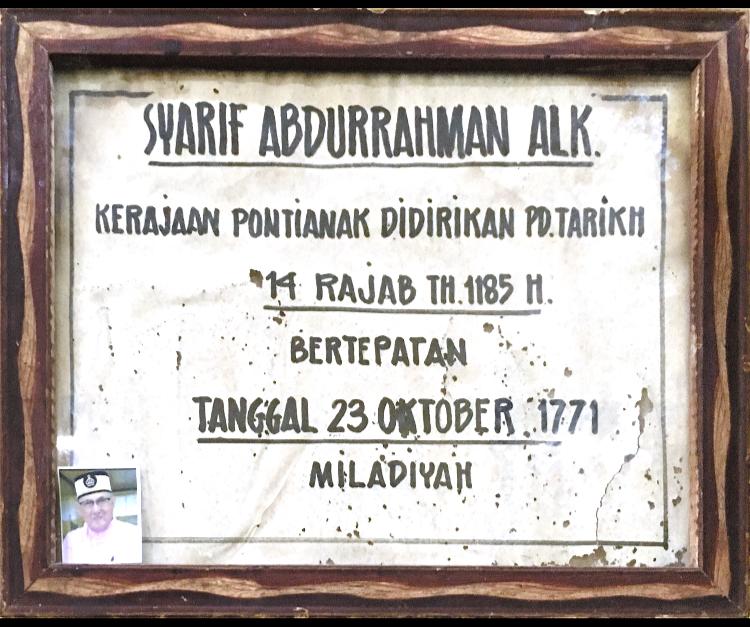 SYARIF ABDURRAHMAN ALK.
KERAJAAN PONTIANAK DIDIRIKAN PD.TARIKH
14 RAJAB TH.1185 H.
BERTEPATAN
TANGGAL 23 OKTOBER 1771
MILADIYAH